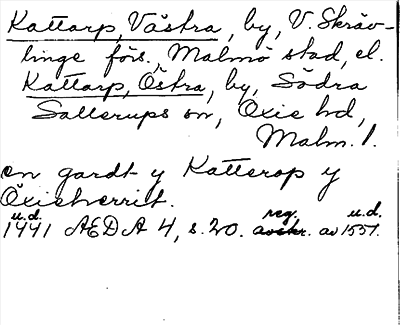 Kattarp, Västra, by, V. Skräv-
linge förs., Malmö stad, el.
Kattarp, Östra, by, Södra
Sallerups sn, Oxie hd,
Malm. l.
en gardt y Katterop y
Öxieherrit.
u.d. reg. u.d.
1441 AEDA 4, s. 20. avskr. av 1551.